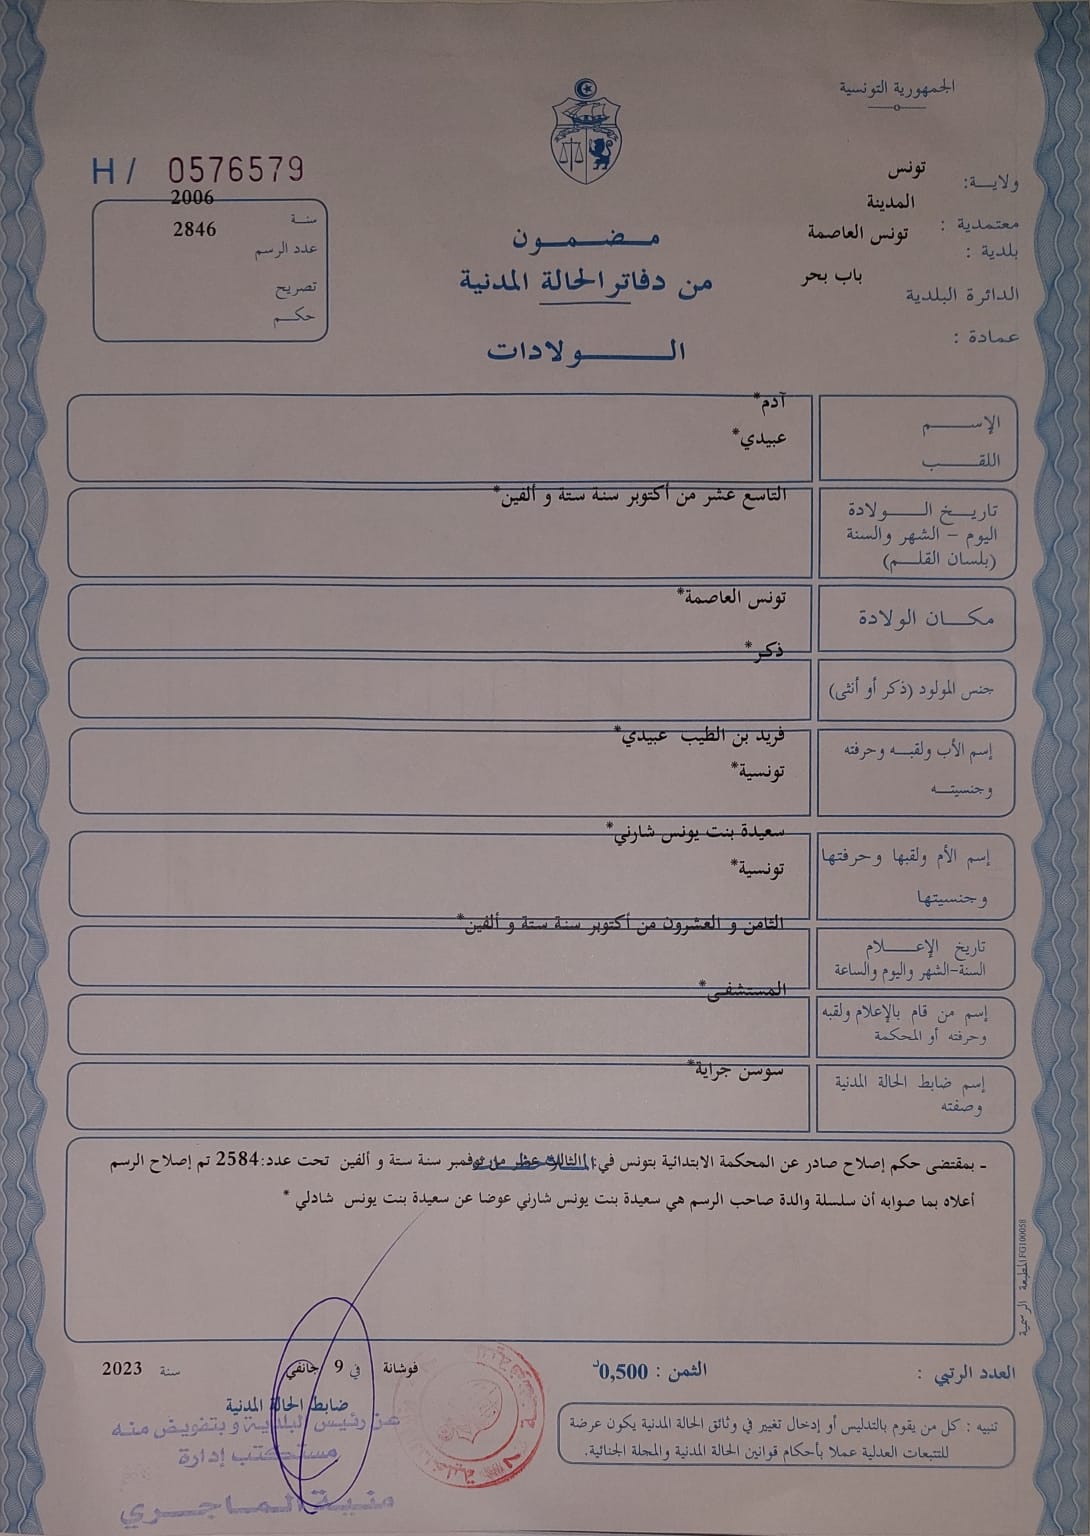 الجمهورية التونسية
H/ 0576579
ولاية: تونس
معتمدية : المدينة
بلدية : تونس العاصمة
الدائرة البلدية باب بحر
عمادة :
سنة 2006
عدد الرسم 2846
تصريح
حكم
مضمون
من دفاتر الحالة المدنية
الولادات
الإسم آدم*
اللقب عبيدي*
تاريخ الولادة
اليوم – الشهر والسنة
(بلسان القلم)
التاسع عشر من أكتوبر سنة ستة و ألفين*
مكان الولادة تونس العاصمة*
جنس المولود (ذكر أو أنثى) ذكر*
إسم الأب ولقبه وحرفته
وجنسيته
فريد بن الطيب عبيدي*
تونسية*
إسم الأم ولقبها وحرفتها
وجنسيتها
سعيدة بنت يونس شارني*
تونسية*
تاريخ الإعلام
السنة-الشهر واليوم والساعة
الثامن و العشرون من أكتوبر سنة ستة و ألفين*
إسم من قام بالإعلام ولقبه
وحرفته أو المحكمة
المستشفى*
إسم ضابط الحالة المدنية
وصفته
سوسن جراية*
- بمقتضى حكم إصلاح صادر عن المحكمة الابتدائية بتونس في: الثالث عشر من نوفمبر سنة ستة و ألفين تحت عدد:2584 تم إصلاح الرسم
أعلاه بما صوابه أن سلسلة والدة صاحب الرسم هي سعيدة بنت يونس شارني عوضا عن سعيدة بنت يونس شادلي *
المطبعة الرسمية FG100058
العدد الرتبي :
الثمن : 0,500د
فوشانة في 9 جانفي سنة 2023
ضابط الحالة المدنية
عن رئيس البلدية و بتفويض منه
مستكتب إدارة
منية الماجري
تنبيه : كل من يقوم بالتدليس أو إدخال تغيير في وثائق الحالة المدنية يكون عرضة
للتتبعات العدلية عملا بأحكام قوانين الحالة المدنية والمجلة الجنائية.